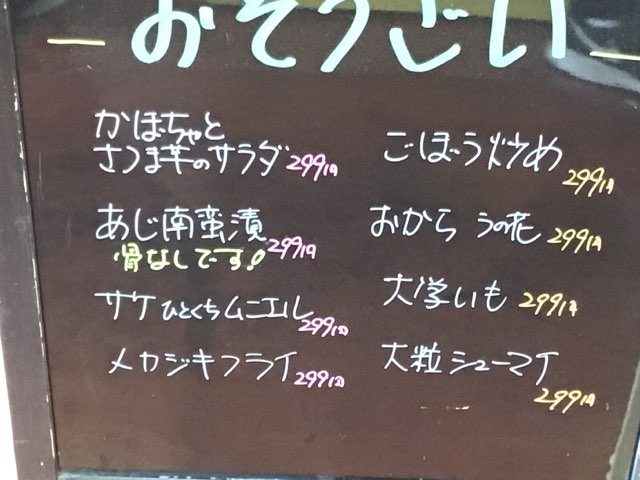 おそうざい
かぼちゃと
さつま芋のサラダ 299円
あじ南蛮漬 299円
骨なしです!
サケひとくちムニエル 299円
メカジキフライ 299円
ごぼう炒め 299円
おから うの花 299円
大学いも 299円
大粒シューマイ 299円